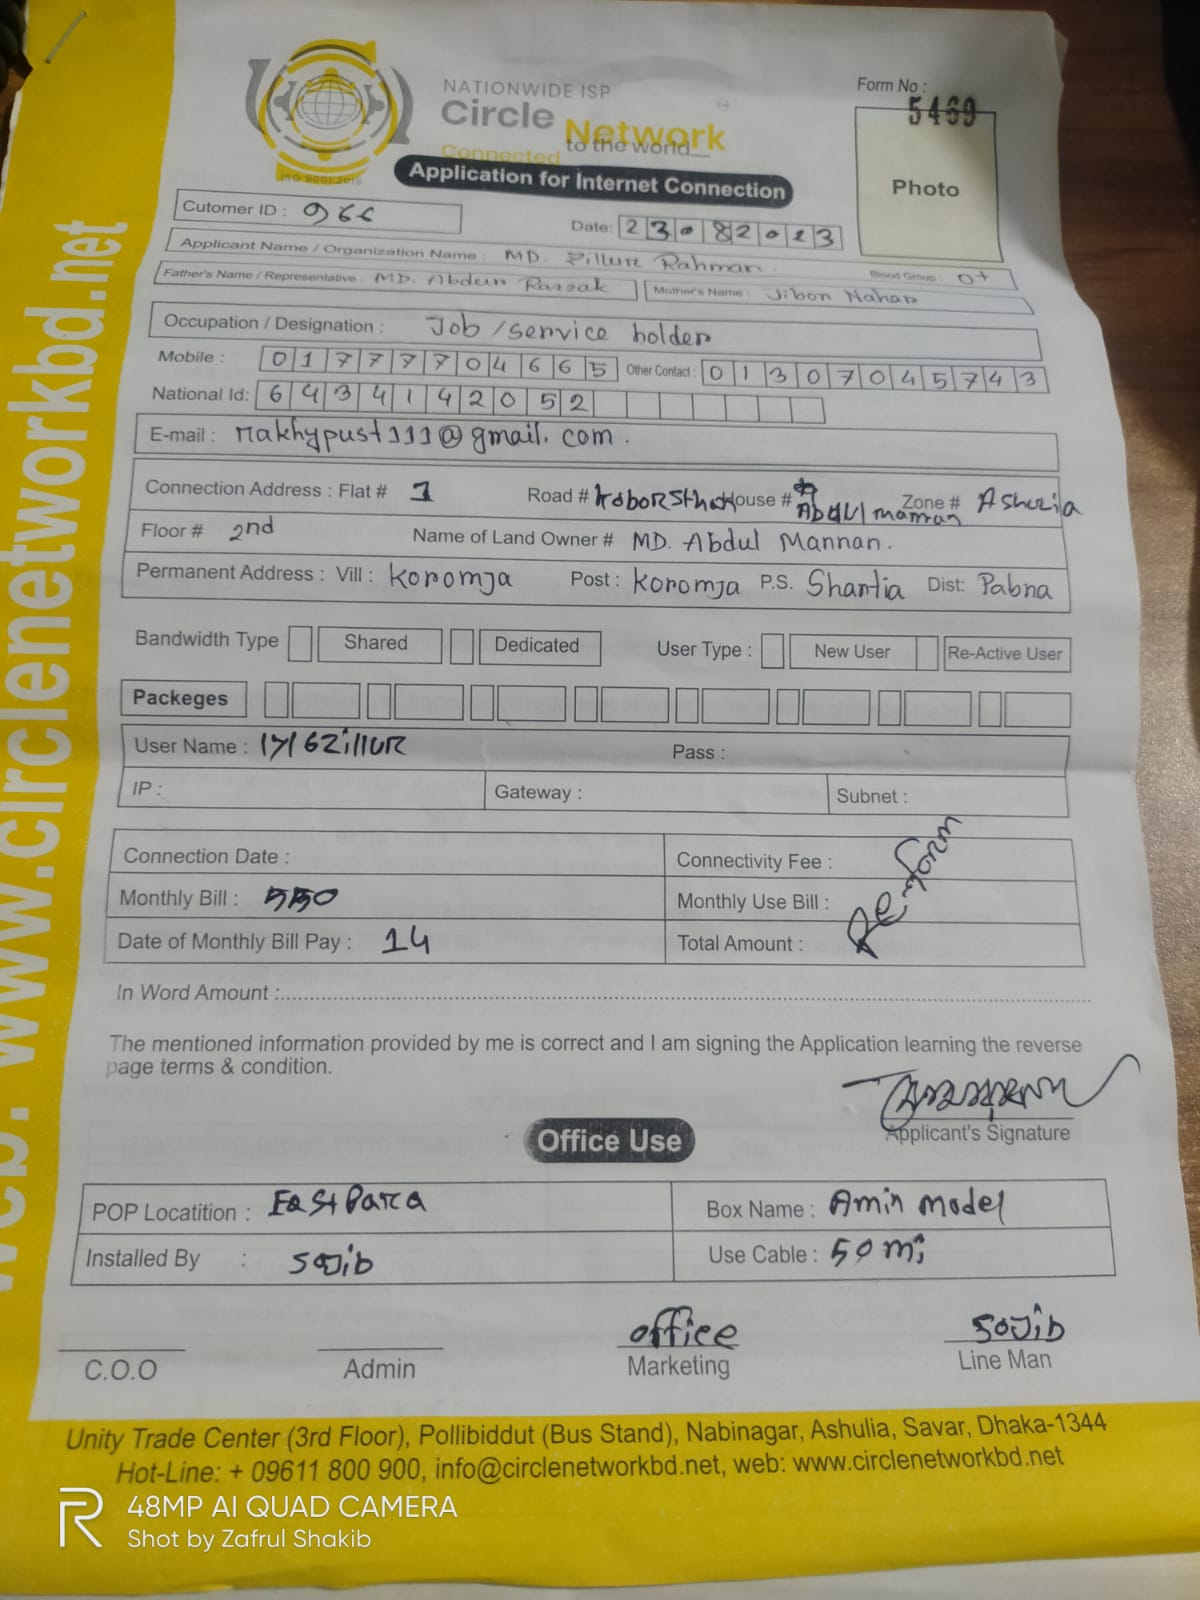 web: www.circlenetworkbd.net
NATIONWIDE ISP
Circle Network
Connected to the world.....
ISO 9001:2015
Form No :
5469
Photo
Application for Internet Connection
Cutomer ID : 966
Date: 23 08 2023
Applicant Name / Organization Name : MD. Zillur Rahman.
Blood Group : O+
Father's Name / Representative : MD. Abdur Razzak
Mother's Name : Jibon Nahar
Occupation / Designation : Job / service holder
Mobile : 01777704665 Other Contact : 01307045743
National Id: 6434142052
E-mail : rakhypust111@gmail.com.
Connection Address : Flat # 1 Road # House # Abdul mannan Zone #
Floor # 2nd Name of Land Owner # MD. Abdul Mannan.
Permanent Address : Vill : Koromja Post : Koromja P.S. Shantia Dist: Pabna
Bandwidth Type Shared Dedicated User Type : New User Re-Active User
Packeges
User Name : Pass :
IP : Gateway : Subnet :
Connection Date : Connectivity Fee :
Monthly Bill : 550 Monthly Use Bill :
Date of Monthly Bill Pay : 14 Total Amount :
Re-from
In Word Amount :
The mentioned information provided by me is correct and I am signing the Application learning the reverse
page terms & condition.
Applicant's Signature
Office Use
POP Locatition : East Para Box Name : Amin model
Installed By : Sojib Use Cable : 50 m;
office Sojib
C.O.O Admin Marketing Line Man
Unity Trade Center (3rd Floor), Pollibiddut (Bus Stand), Nabinagar, Ashulia, Savar, Dhaka-1344
Hot-Line: + 09611 800 900, info@circlenetworkbd.net, web: www.circlenetworkbd.net
48MP AI QUAD CAMERA
Shot by Zafrul Shakib